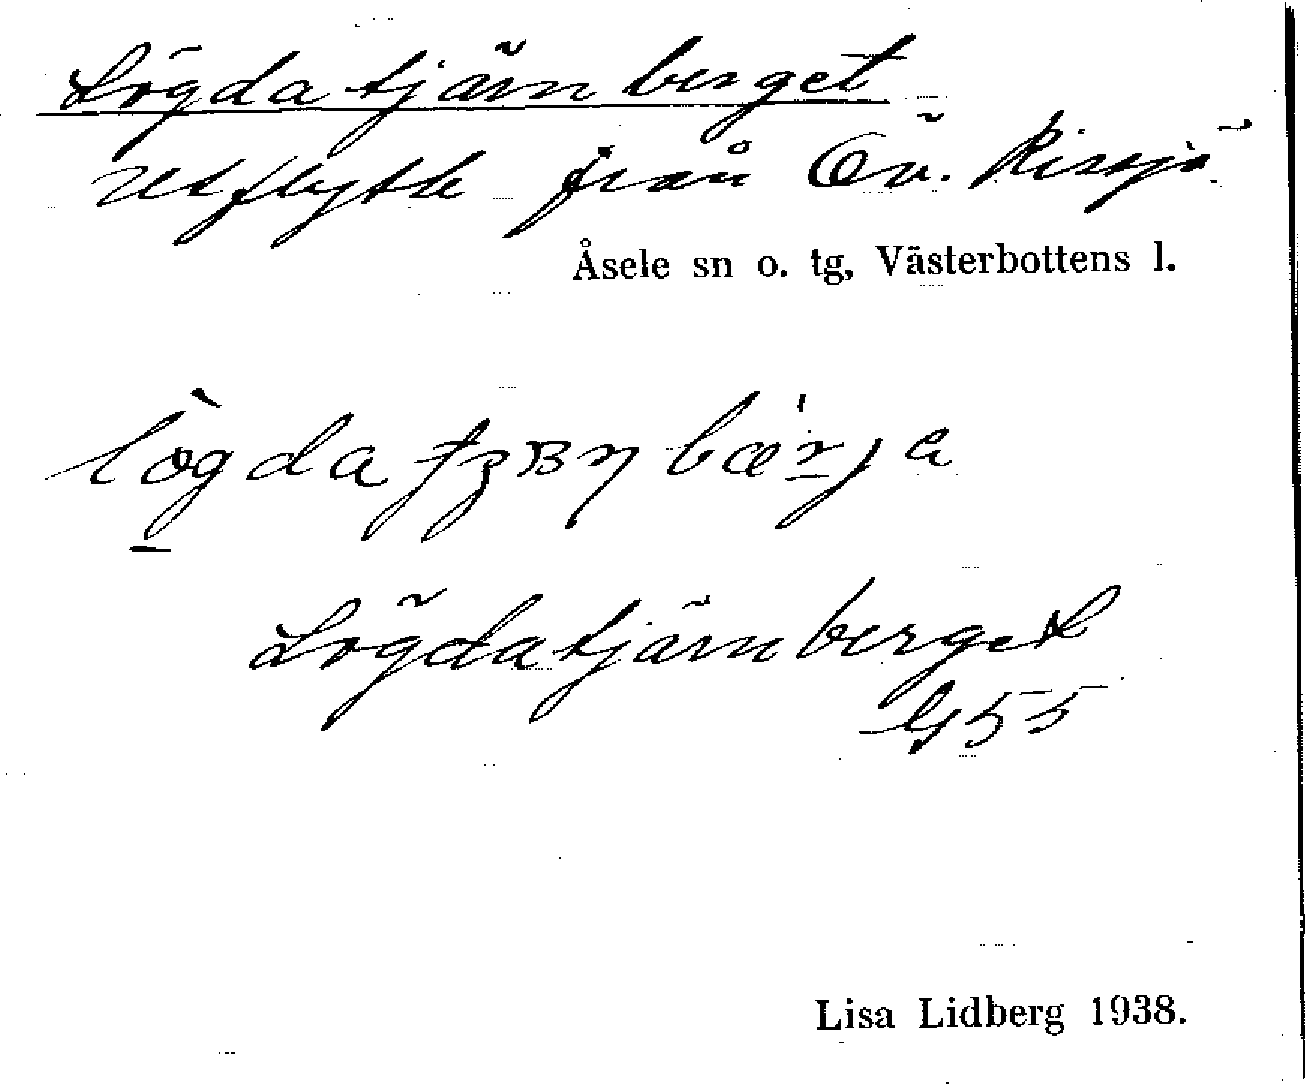 Lögdatjärnberget
utflytt från Öv. Rissjö
Åsele sn o. tg, Västerbottens l.
Lögdatjärnberget
G 55
Lisa Lidberg 1938.